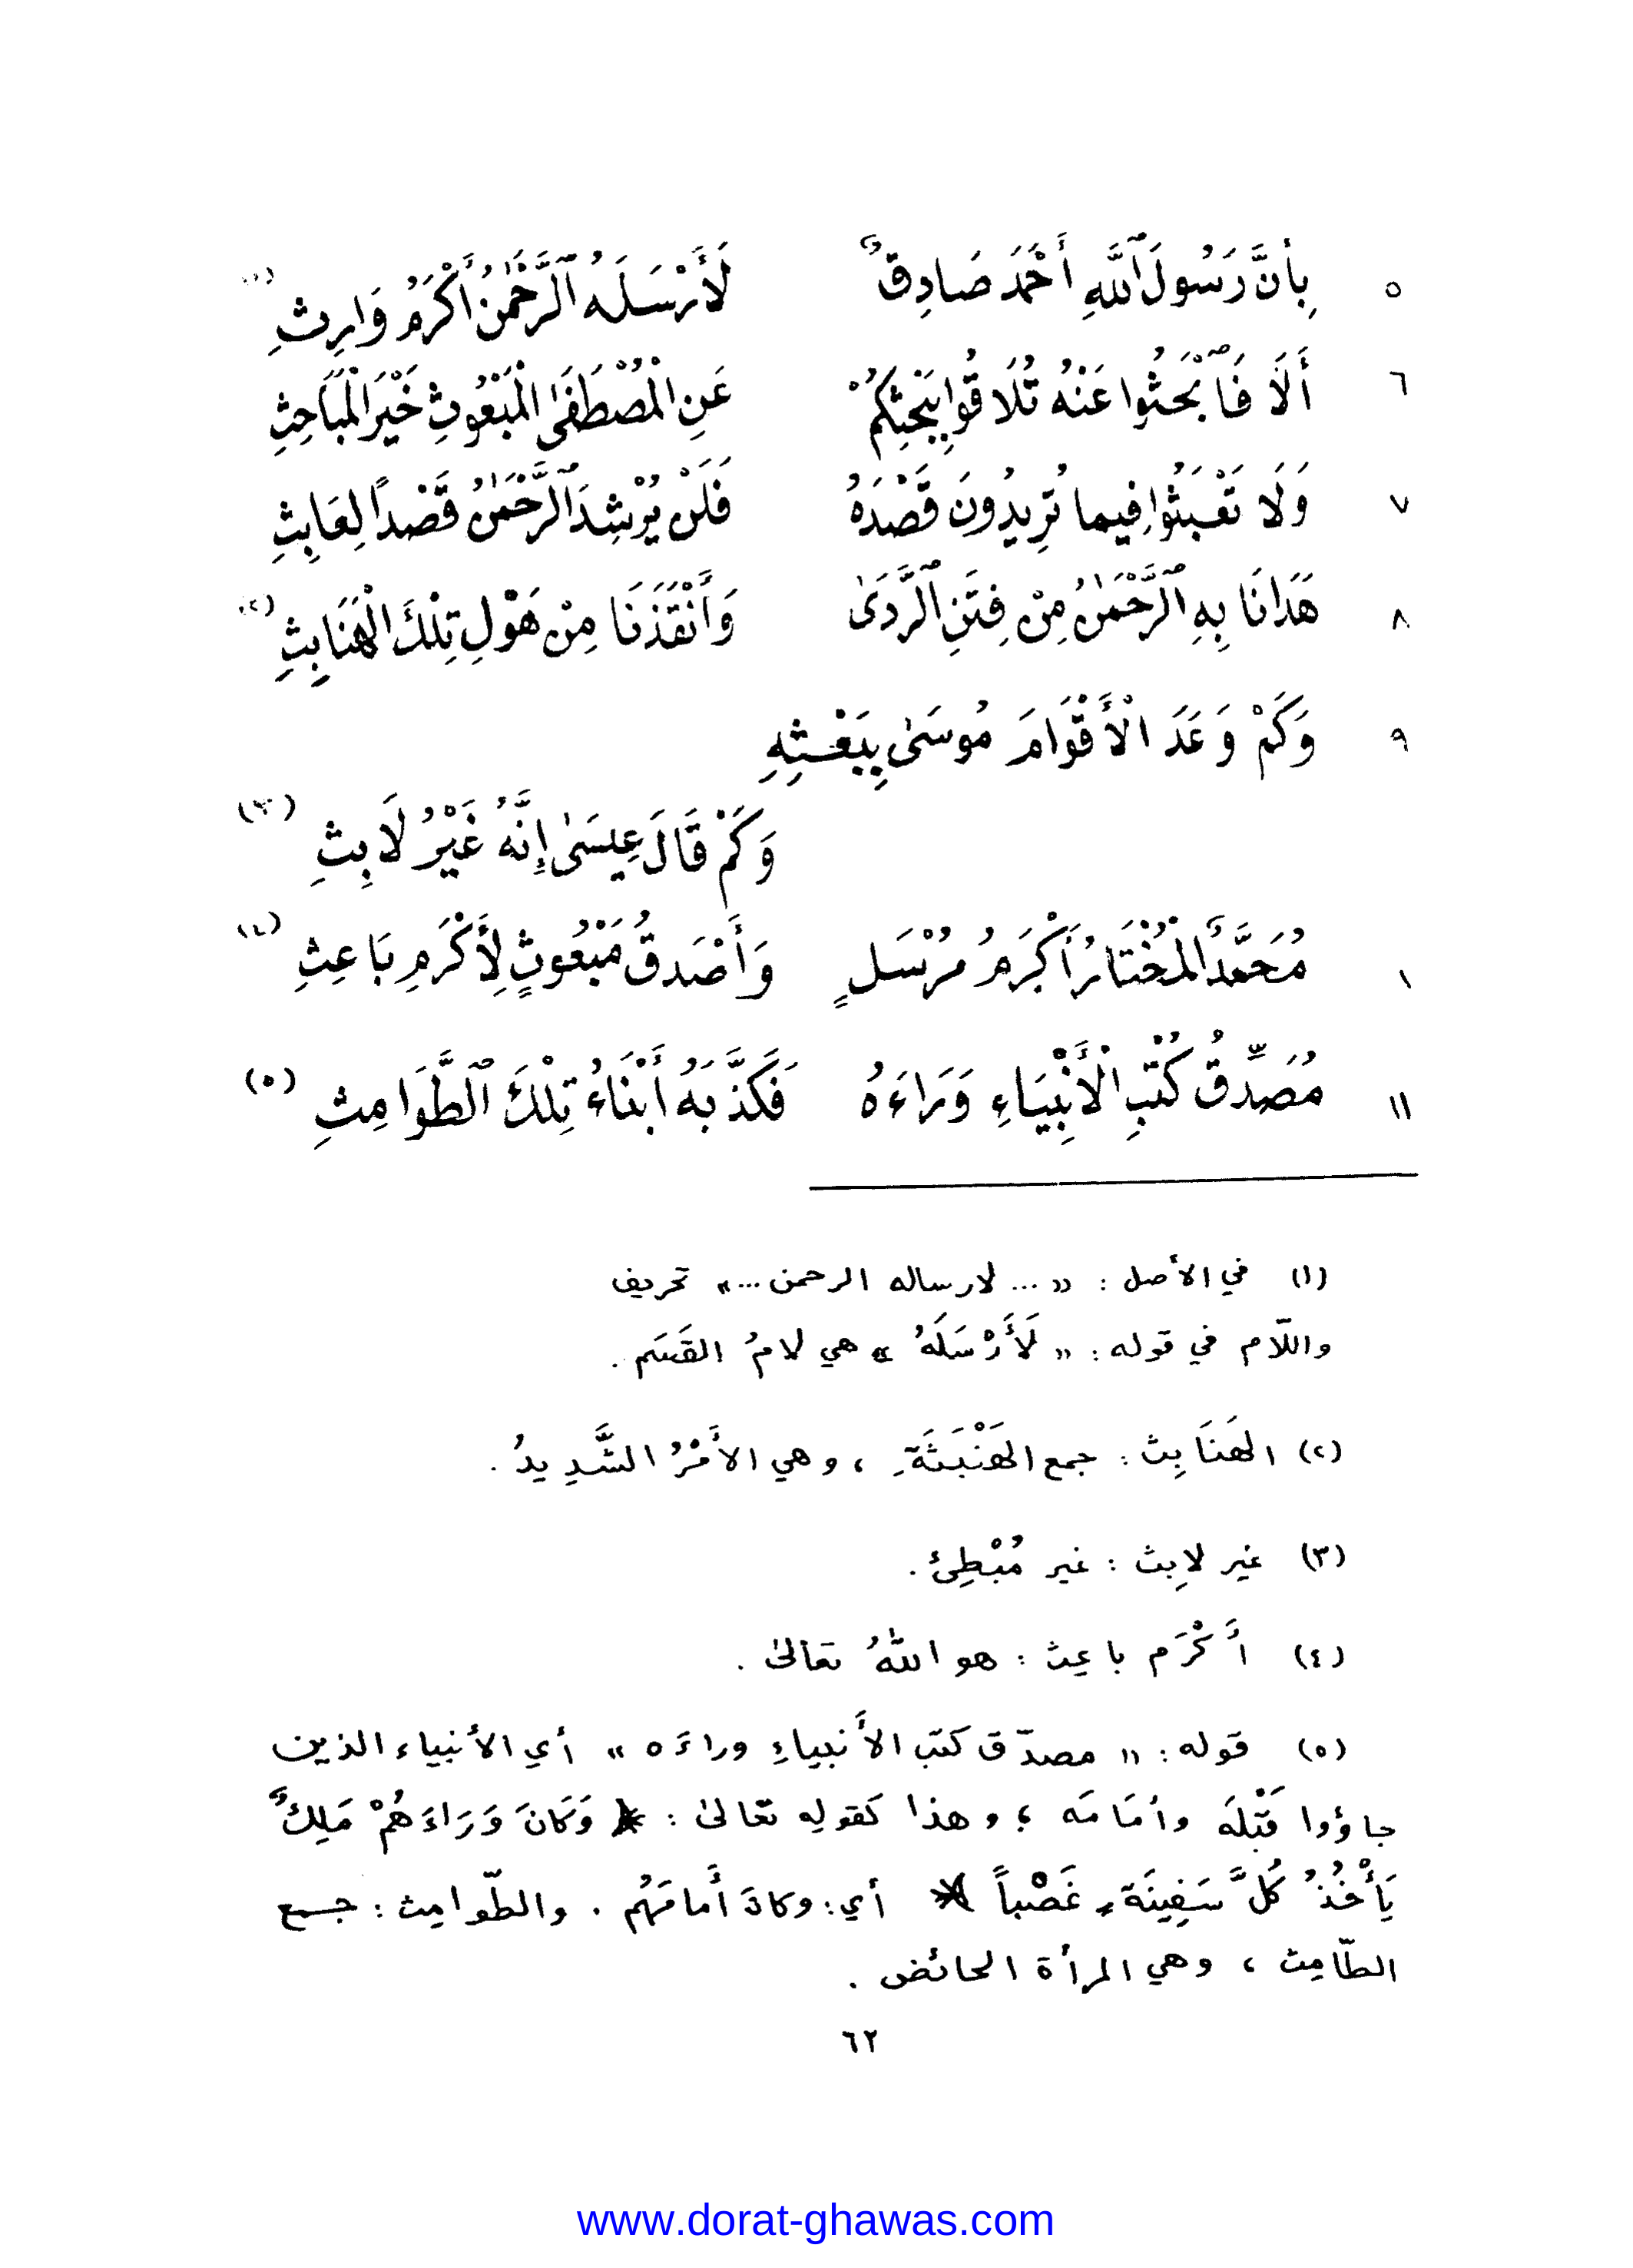 ٥ بِأَنَّ رَسُولَ ٱللَّهِ أَحْمَدَ صَادِقٌ لَأَرْسَلَهُ ٱلرَّحْمٰنُ أَكْرَمُ وَارِثِ (١)
٦ أَلَا فَٱبْحَثُوا عَنْهُ تُلَاقُوا بِبَحْثِكُمْ عَنِ الْمُصْطَفَىٰ الْمَبْعُوثِ خَيْرَ الْمَبَاحِثِ
٧ وَلَا تَعْبَثُوا فِيما تُرِيدُونَ قَصْدَهُ فَلَنْ يُرْشِدَ ٱلرَّحْمٰنُ قَصْداً لِعَابِثِ
٨ هَدَانَا بِهِ ٱلرَّحْمٰنُ مِنْ فِتَنِ ٱلرَّدَىٰ وَأَنْقَذَنَا مِنْ هَوْلِ تِلْكَ الْهَنَابِثِ (٢)
٩ وَكَمْ وَعَدَ الْأَقْوَامَ مُوسَىٰ بِبَعْثِهِ
وَكَمْ قَالَ عِيسَىٰ إِنَّهُ غَيْرُ لَابِثِ (٣)
١ مُحَمَّدٌ الْمُخْتَارُ أَكْرَمُ مُرْسَلٍ وَأَصْدَقُ مَبْعُوثٍ لِأَكْرَمِ بَاعِثِ (٤)
١١ مُصَدِّقُ كُتْبِ الْأَنْبِيَاءِ وَرَاءَهُ فَكَذَّبَهُ أَبْنَاءُ تِلْكَ ٱلطَّوَامِثِ (٥)
(١) في الأصل : « ... لارساله الرحمن ... » تحريف
واللّام في قوله : « لَأَرْسَلَهُ » هي لامُ القَسَم .
(٢) الهَنَابِث : جمع الهَنْبَثَةِ ، وهي الأَمْرُ الشَّدِيدُ .
(٣) غير لابِث : غير مُبْطِئ .
(٤) أَكْرَم باعِث : هو اللّٰهُ تعالىٰ .
(٥) قوله : « مصدّق كتب الأَنبياءِ وراءَه » أي الأنبياء الذين
جاؤوا قَبْلَه وأمَامَه ؛ وهذا كَقولِهِ تعَالىٰ : ﴿ وَكَانَ وَرَاءَهُمْ مَلِكٌ
يَأْخُذُ كُلَّ سَفِينَةٍ غَصْباً ﴾ أي : وكانَ أَمامَهُم . والطّوامِث : جمع
الطّامِث ، وهي المرأة الحائض .
٦٢
www.dorat-ghawas.com